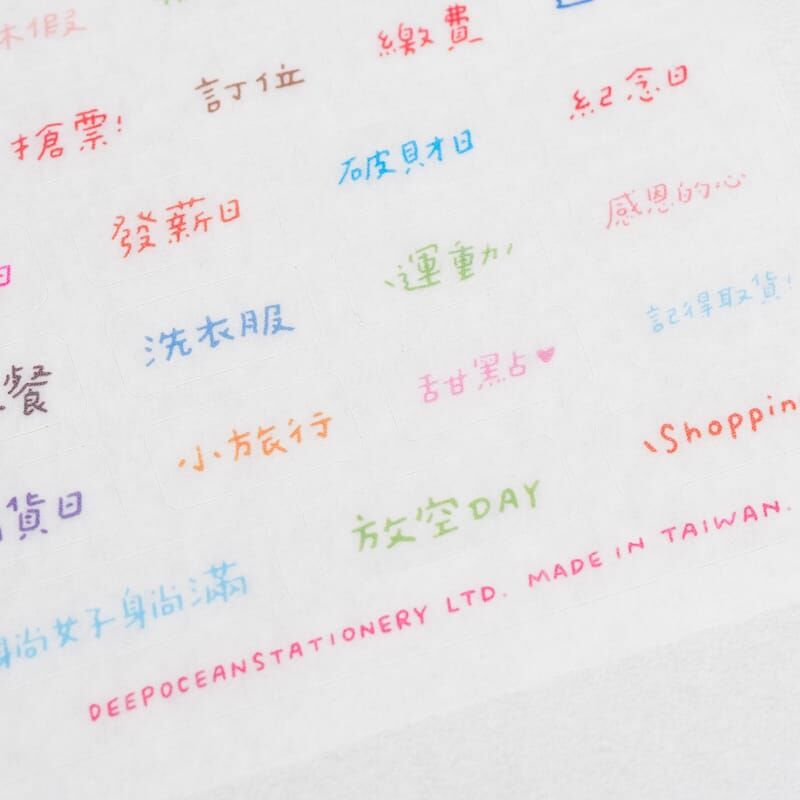 休假
繳費
訂位
搶票!
紀念日
破財日
發薪日
感恩的心
運動
洗衣服
記得取貨!
甜黑占♥
餐
小旅行
\Shoppin
貨日
放空DAY
躺女子身躺滿
DEEPOCEANSTATIONERY LTD. MADE IN TAIWAN.